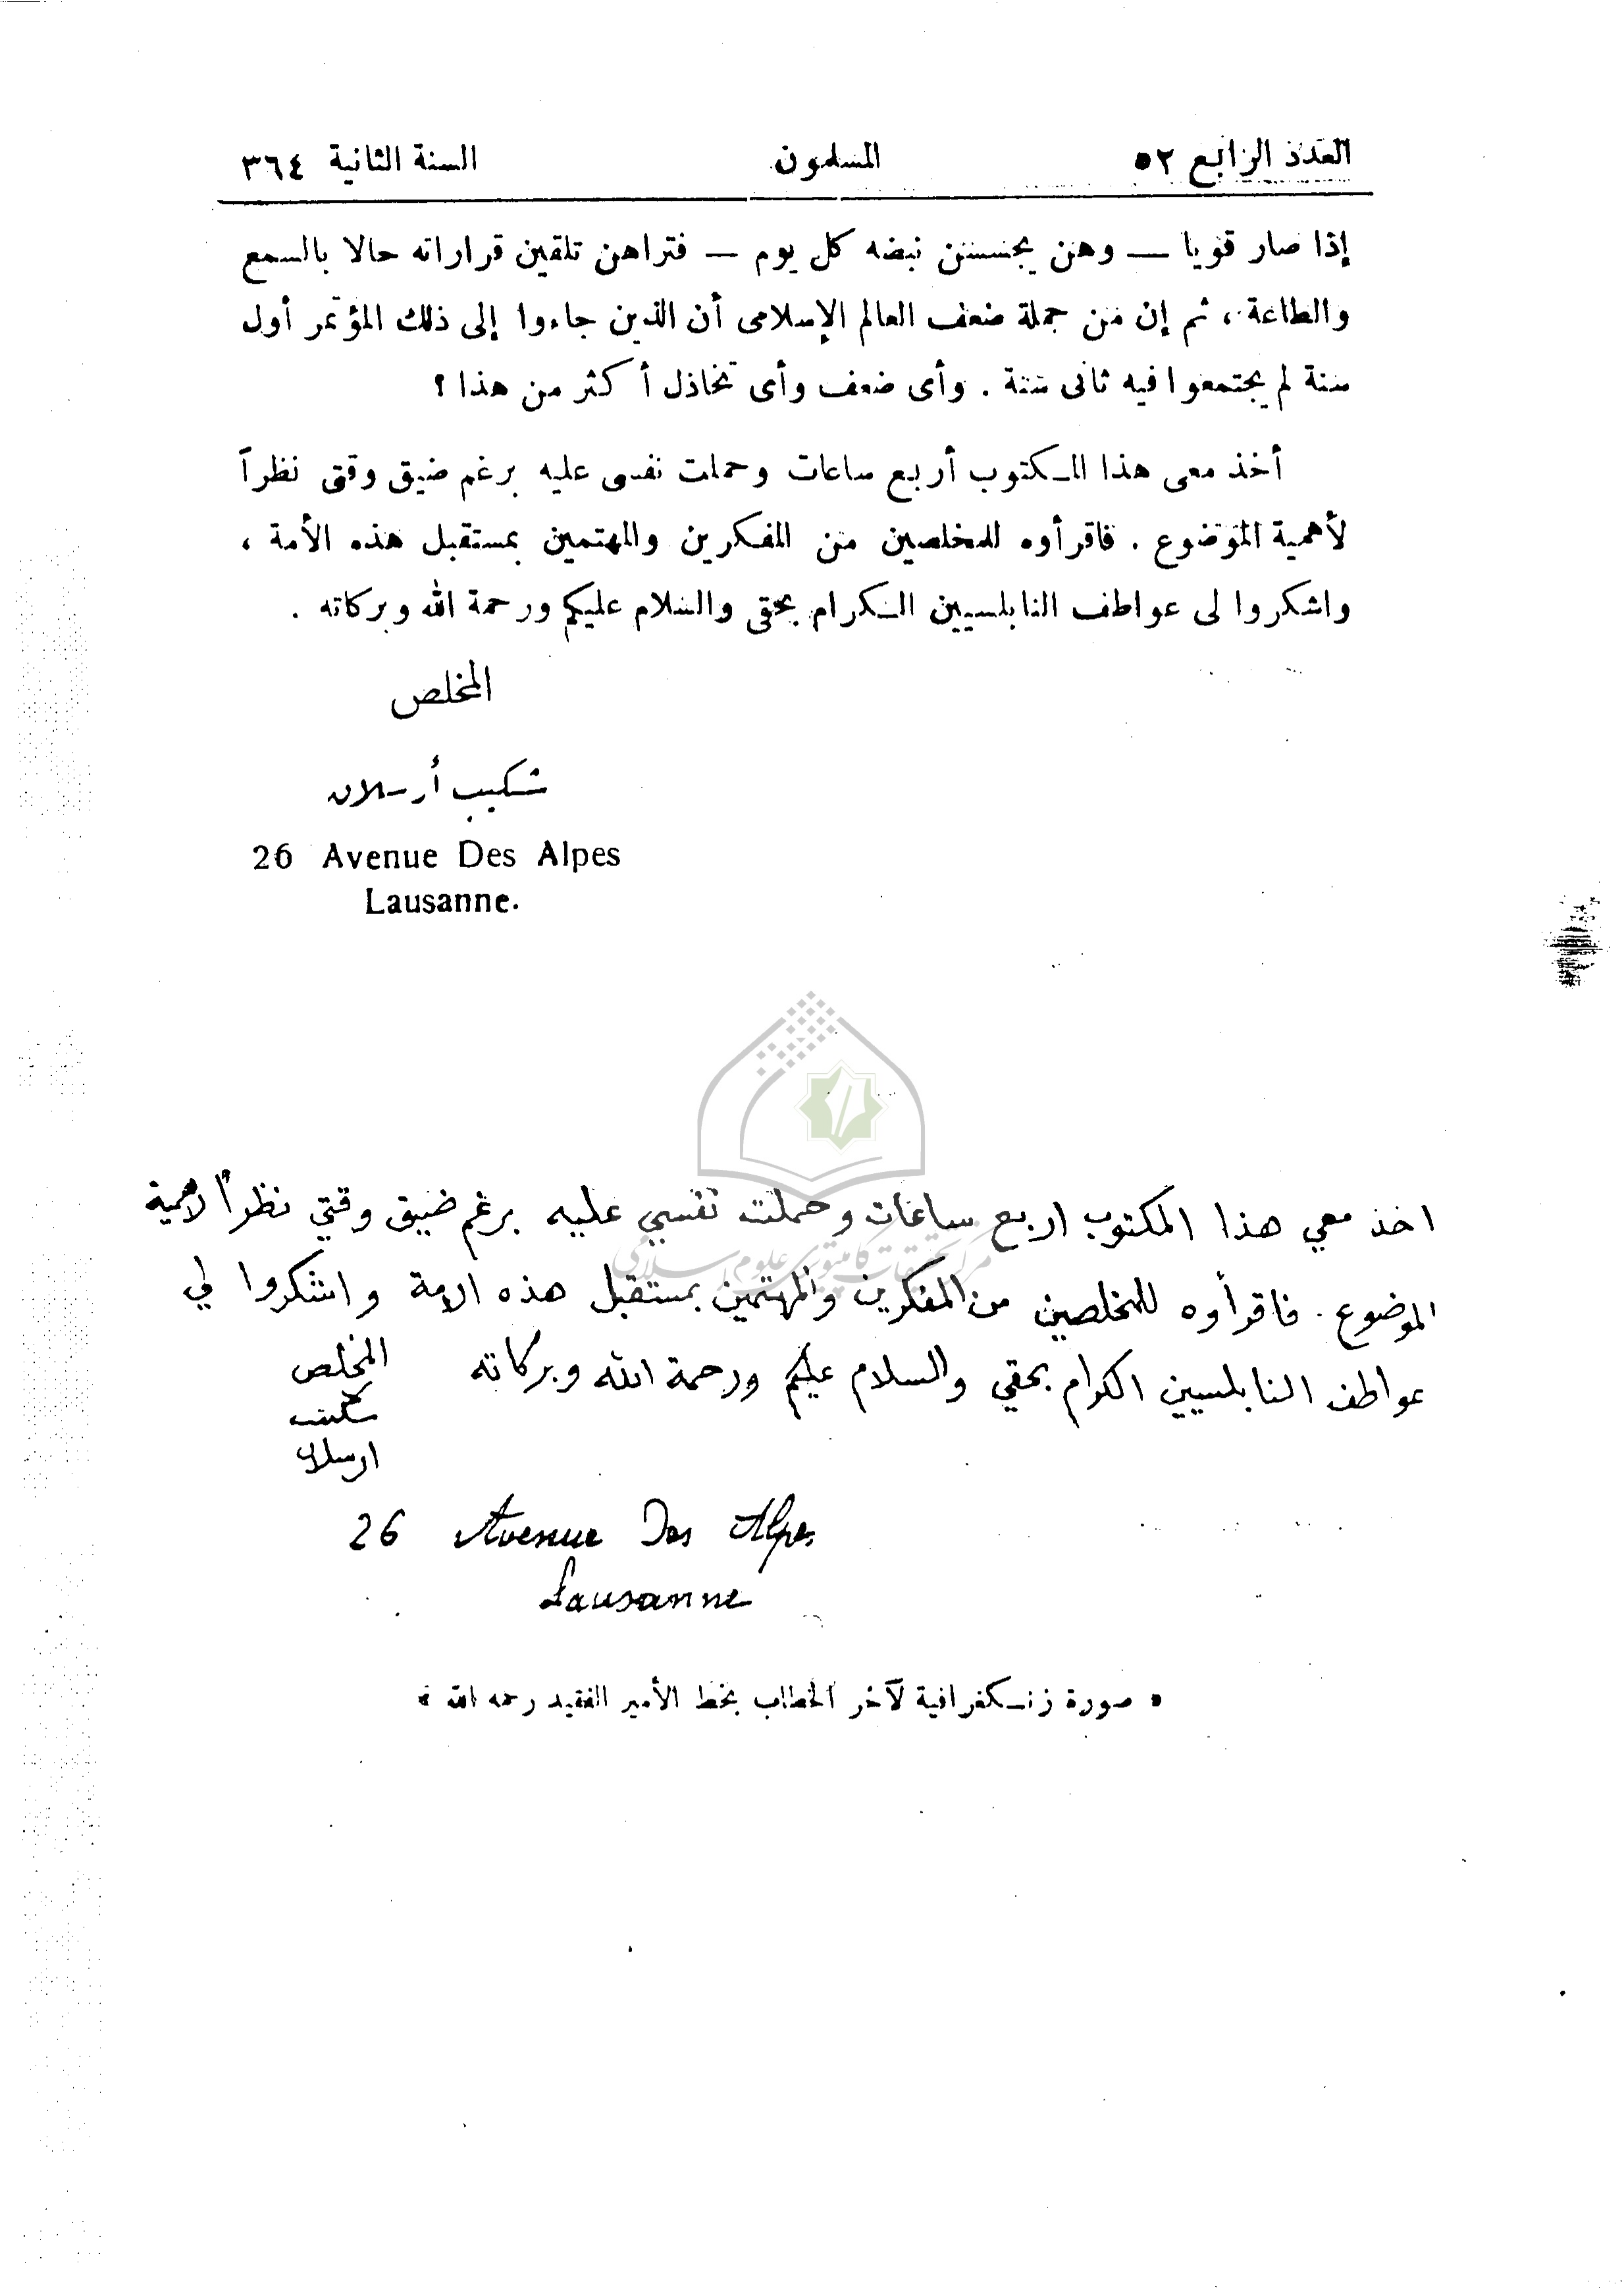 العدد الرابع ٥٢
المسلمون
السنة الثانية ٣٦٤
إذا صار قويا — وهن يجسسن نبضه كل يوم — فتراهن تلقين قراراته حالا بالسمع
والطاعة ، ثم إن من جملة ضعف العالم الإسلامى أن الذين جاءوا إلى ذلك المؤتمر أول
سنة لم يجتمعوا فيه ثانى سنة . وأى ضعف وأى تخاذل أكثر من هذا ؟
أخذ معى هذا المكتوب أربع ساعات وحملت نفسى عليه برغم ضيق وقتى نظراً
لأهمية الموضوع . فاقرأوه للمخلصين من المفكرين والمهتمين بمستقبل هذه الأمة ،
واشكروا لى عواطف النابلسيين الكرام بحقى والسلام عليكم ورحمة الله وبركاته .
المخلص
شكيب أرسلان
26 Avenue Des Alpes
Lausanne.
اخذ معي هذا المكتوب اربع ساعات وحملت نفسي عليه برغم ضيق وقتي نظراً لاهمية
الموضوع . فاقرأوه للمخلصين من المفكرين والمهتمين بمستقبل هذه الامة واشكروا لي
عواطف النابلسيين الكرام بحقي والسلام عليكم ورحمة الله وبركاته
المخلص
شكيب
ارسلان
26 Avenue Des Alpes
Lausanne
مركز تحقيقات كامپيوتري علوم اسلامي
« صورة زنكغرافية لآخر الخطاب بخط الأمير الفقيد رحمه الله »